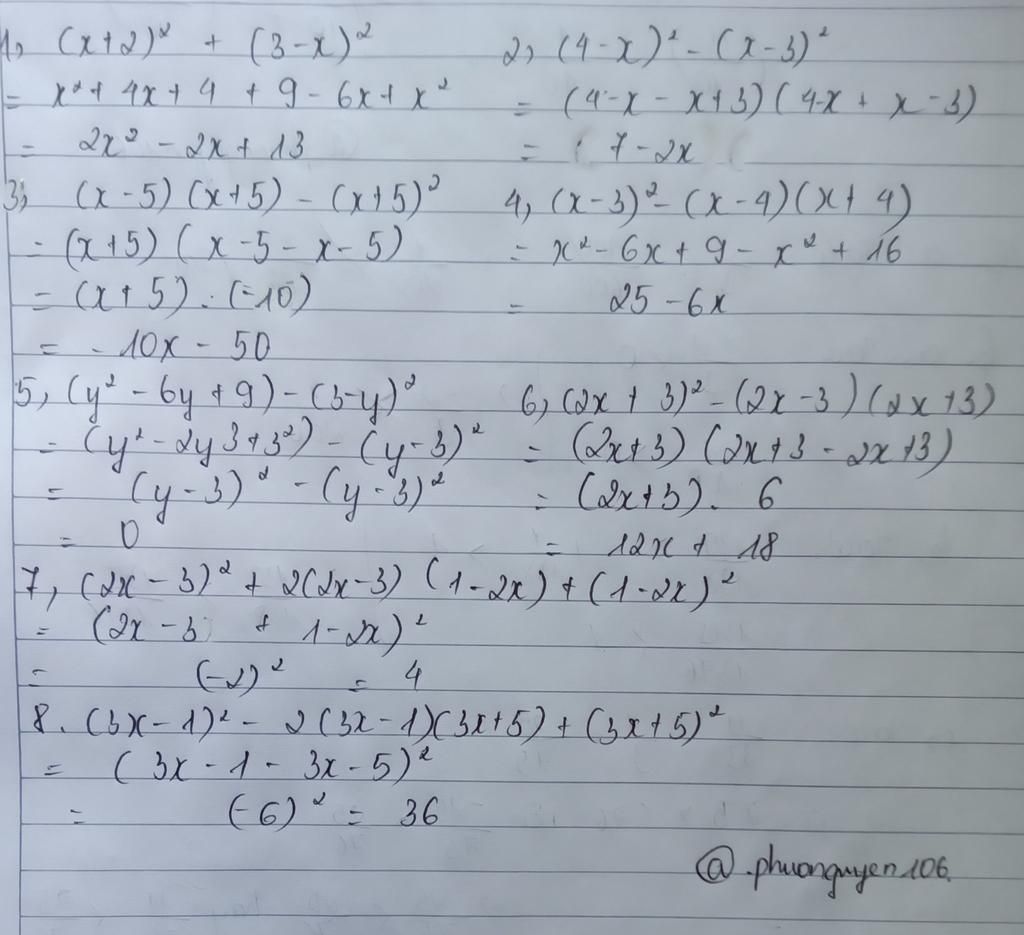 1, (x+2)² + (3-x)²
= x² + 4x + 4 + 9 - 6x + x²
= 2x² - 2x + 13
2, (4-x)² - (x-3)²
= (4-x - x+3)(4-x + x-3)
= 7-2x
3, (x-5)(x+5) - (x+5)²
= (x+5)(x-5-x-5)
= (x+5).(-10)
= -10x - 50
4, (x-3)² - (x-4)(x+4)
= x² - 6x + 9 - x² + 16
= 25 - 6x
5, (y² - 6y + 9) - (3-y)²
= (y² - 2y3 + 3²) - (y-3)²
= (y-3)² - (y-3)²
= 0
6, (2x + 3)² - (2x-3)(2x+3)
= (2x+3)(2x+3 - 2x+3)
= (2x+3). 6
= 12x + 18
7, (2x-3)² + 2(2x-3)(1-2x) + (1-2x)²
= (2x-3 + 1-2x)²
= (-2)² = 4
8. (3x-1)² - 2(3x-1)(3x+5) + (3x+5)²
= (3x - 1 - 3x - 5)²
= (-6)² = 36
@.phuonguyen106.